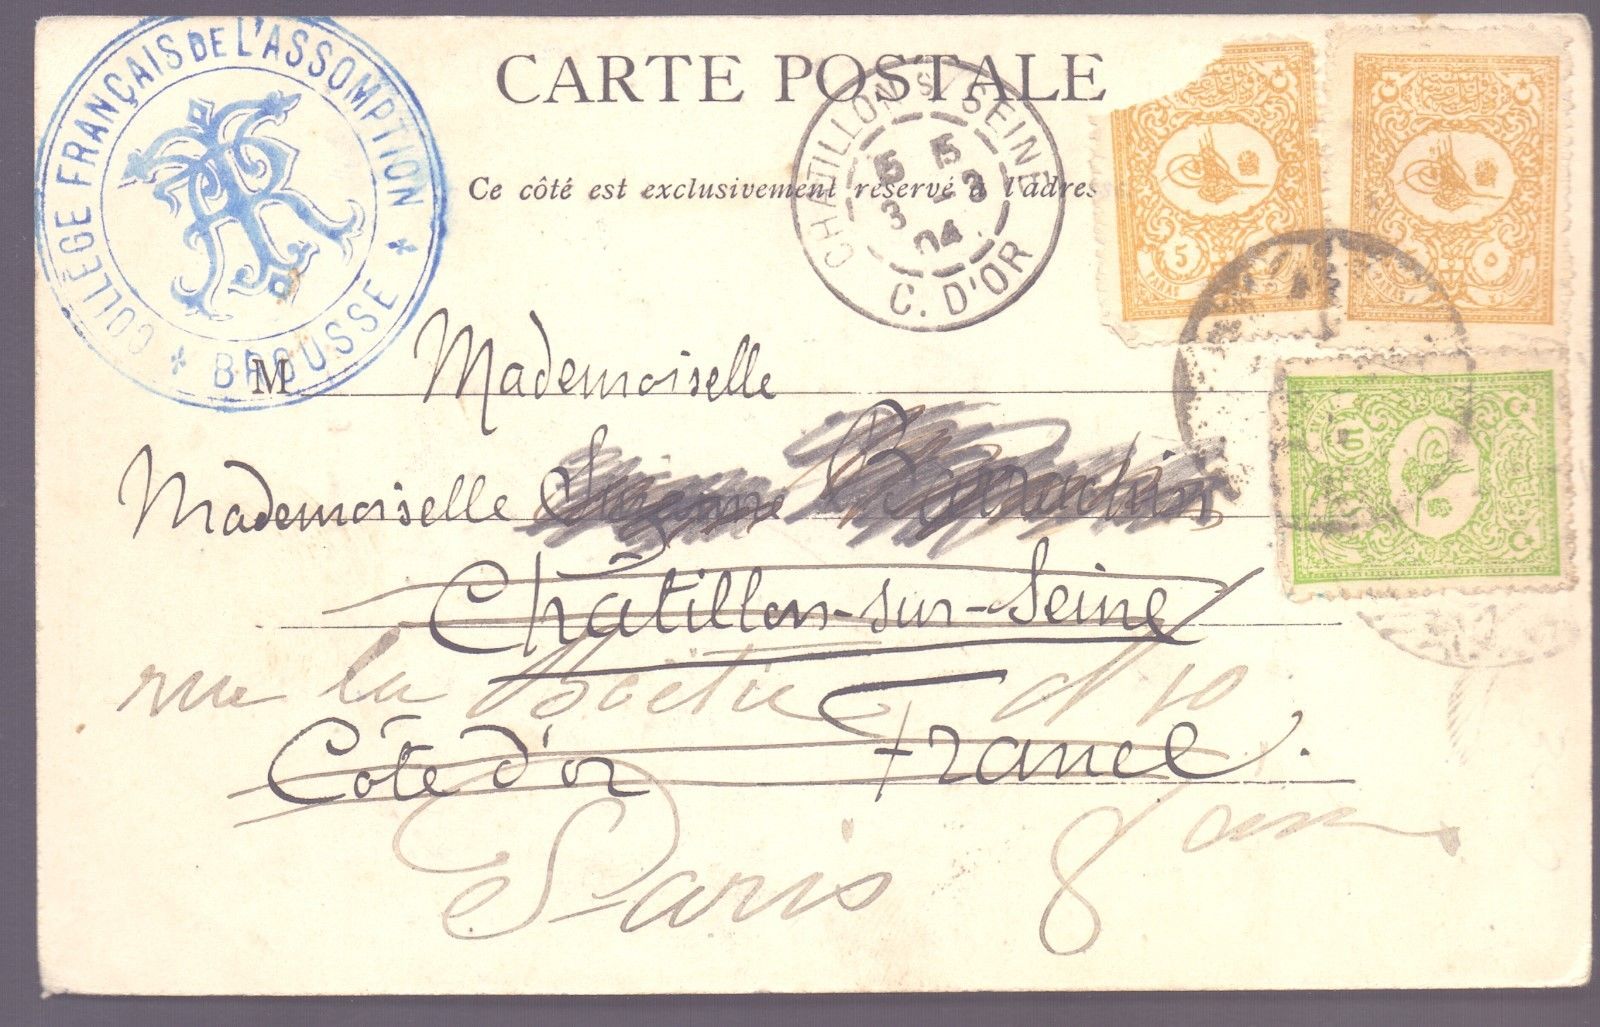 COLLÈGE FRANÇAIS DE L'ASSOMPTION
BROUSSE
AR
CARTE POSTALE
Ce côté est exclusivement réservé à l'adres
CHATILLON S/ SEINE
5 5
3 -3
04
C. D'OR
5
PARAS
٥
M Mademoiselle
Mademoiselle Suzanne
Châtillon-sur-Seine
rue la Boëtie 10
Côte d'or France.
Paris 8